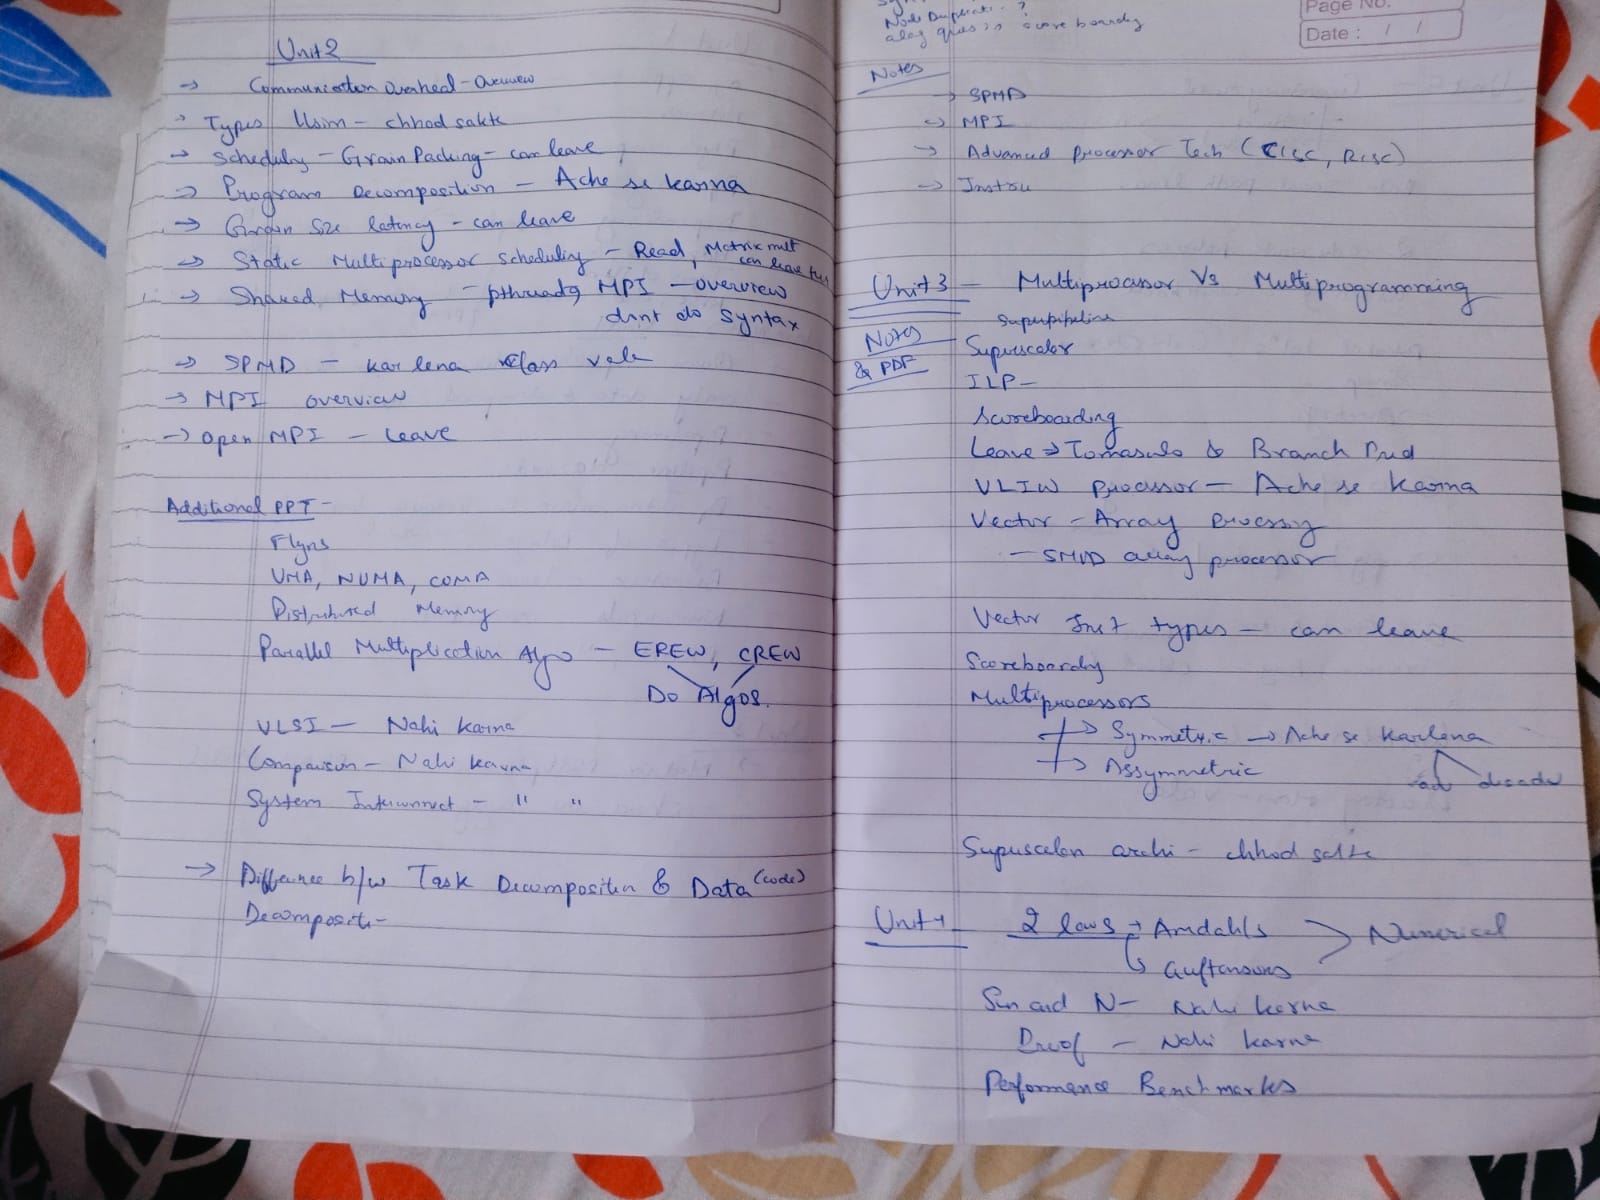 Unit 2
→ Communication overhead - overview
→ Types - chhod sakte
→ Scheduling - Grain Packing - can leave
→ Program Decomposition - Ache se karna
→ Grain Size latency - can leave
→ Static Multiprocessor Scheduling - Read, Matrix mult
can leave
→ Shared Memory - pthreads MPI - overview
dont do syntax
→ SPMD - kar lena Class vale
→ MPI overview
→ Open MPI - leave
Additional PPT -
Flyns
UMA, NUMA, COMA
Distributed Memory
Parallel Multiplication Algo - EREW, CREW
Do Algos.
VLSI - Nahi karna
Comparison - Nahi karna
System Interconnect - " "
→ Difference b/w Task Decomposition & Data (code)
Decompositi-
Page No.
Date : / /
Node Duplicati. ?
alag ques in score boarding
Notes
→ SPMD
→ MPI
→ Advanced Processor Tech (CISC, RISC)
→ Instru
Unit 3 - Multiprocessor Vs Multiprogramming
Superpipeline
Notes
& PDF
Superscalar
ILP -
Scoreboarding
Leave → Tomasulo & Branch Pred
VLIW Processor - Ache se karna
Vector - Array processing
- SIMD array processor
Vector Inst types - can leave
Scoreboarding
Multiprocessors
→ Symmetric → Ache se karlena
→ Assymmetric
Superscalar archi - chhod sakte
Unit 4 2 laws → Amdahls
Numerical
Gustonsons
Sun and N - Nahi karna
Proof - Nahi karna
Performance Benchmarks